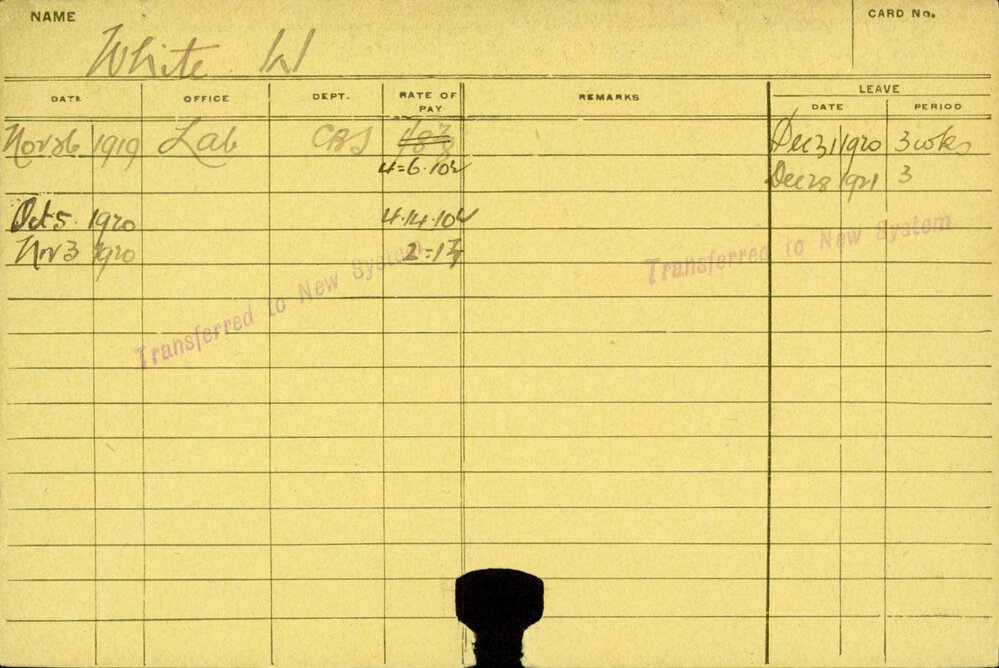 NAME
White W
CARD No.
DATE OFFICE DEPT. RATE OF PAY REMARKS LEAVE
DATE PERIOD
Nov 26 1919 Lab Dec 31 1920 3 wks
4=6.10½
Dec 28 1921 3
Oct 5 1920 4.14.10½
Nov 3 1920
Transferred to New System
Transferred to New System